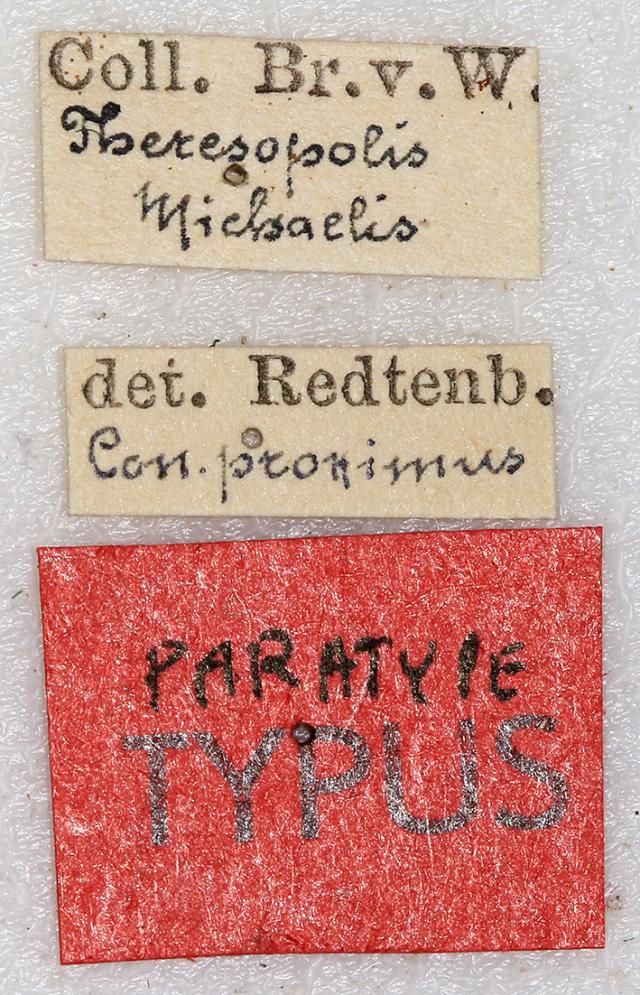 Coll. Br.v.W.
Theresopolis
Michaelis
det. Redtenb.
Con. proximus
PARATYPE
TYPUS